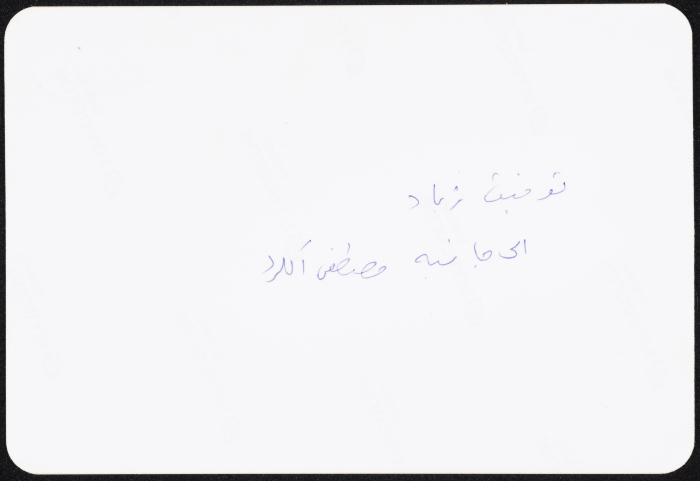 توفيق زياد
الى جانبه مصطفى الكرد